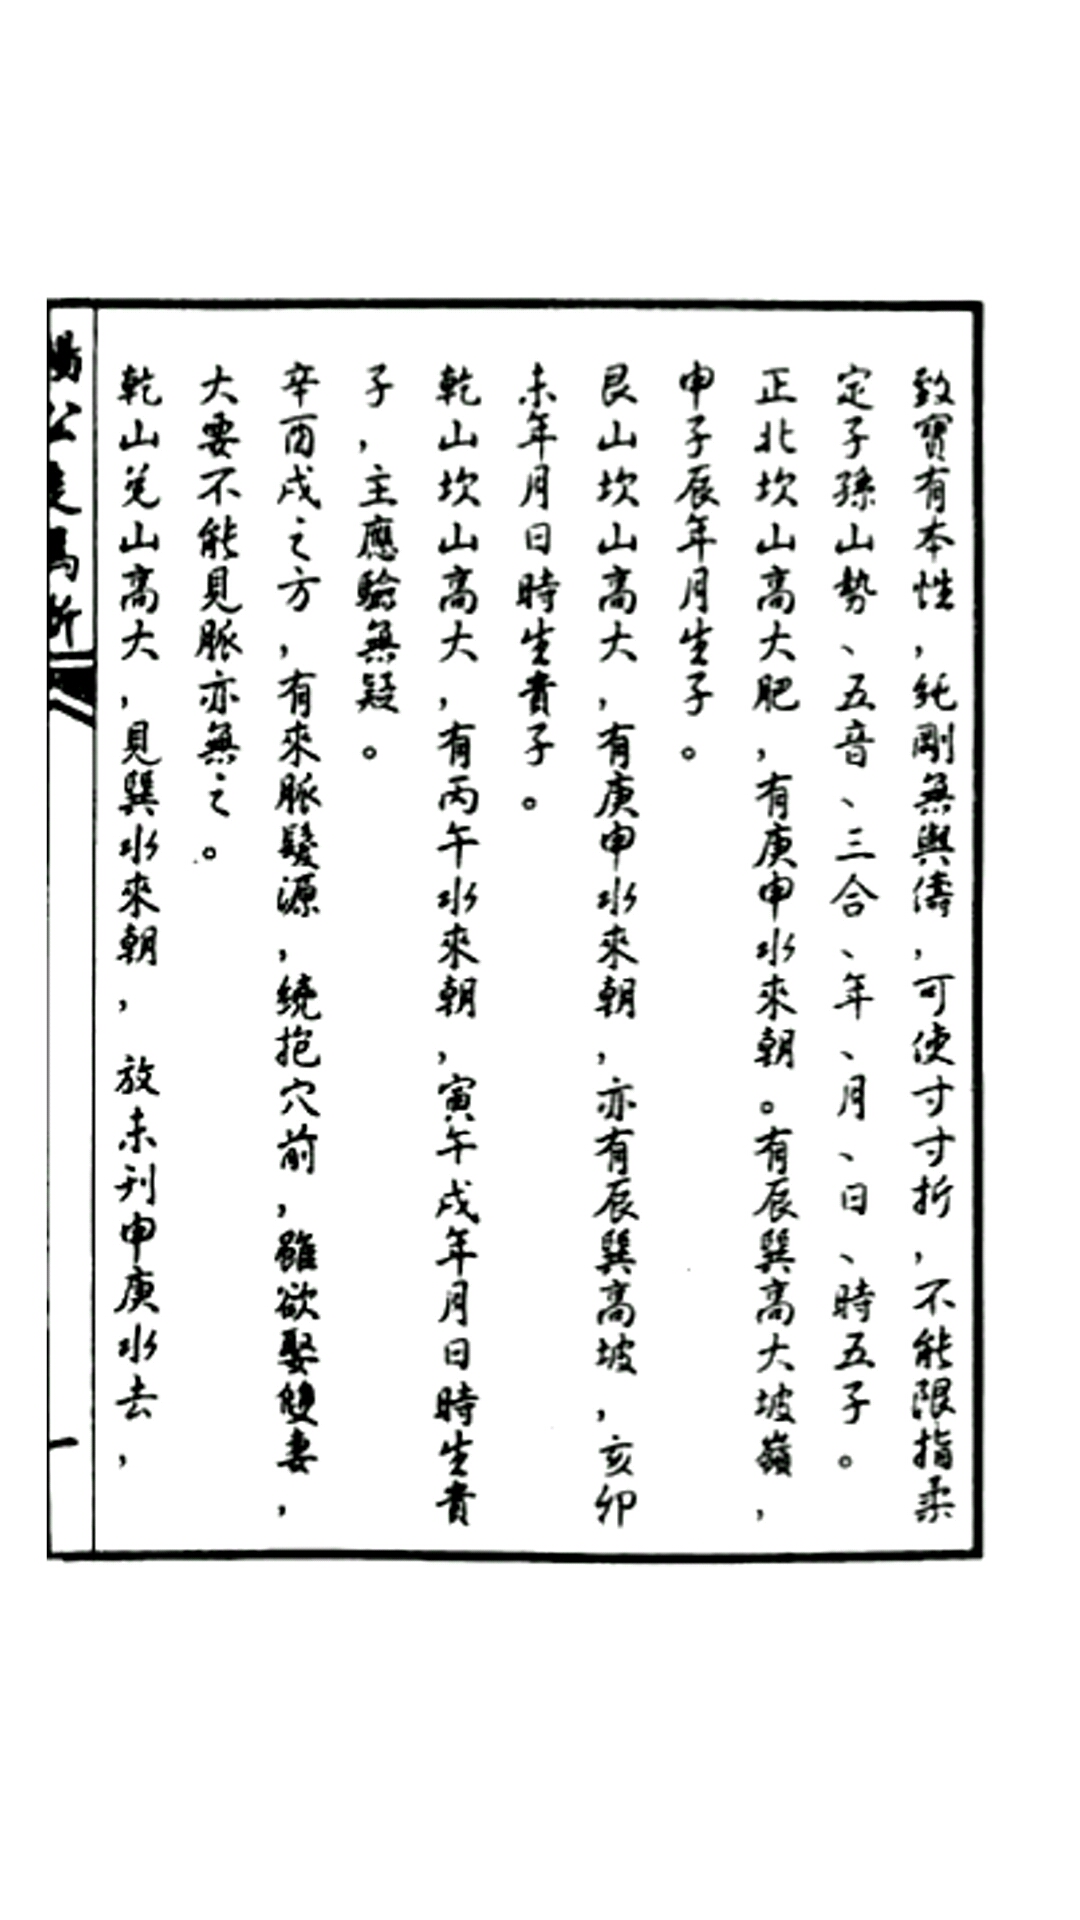 致寶有本性，純剛無與儔，可使寸寸折，不能限指柔
定子孫山勢、五音、三合、年、月、日、時五子。
正北坎山高大肥，有庚申水來朝。有辰巽高大坡嶺，
申子辰年月生子。
艮山坎山高大，有庚申水來朝，亦有辰巽高坡，亥卯
未年月日時生貴子。
乾山坎山高大，有丙午水來朝，寅午戌年月日時生貴
子，主應驗無疑。
辛酉戌之方，有來脈髮源，繞抱穴前，雖欲娶雙妻，
大要不能見脈亦無之。
乾山兌山高大，見巽水來朝，放未刊申庚水去，
一